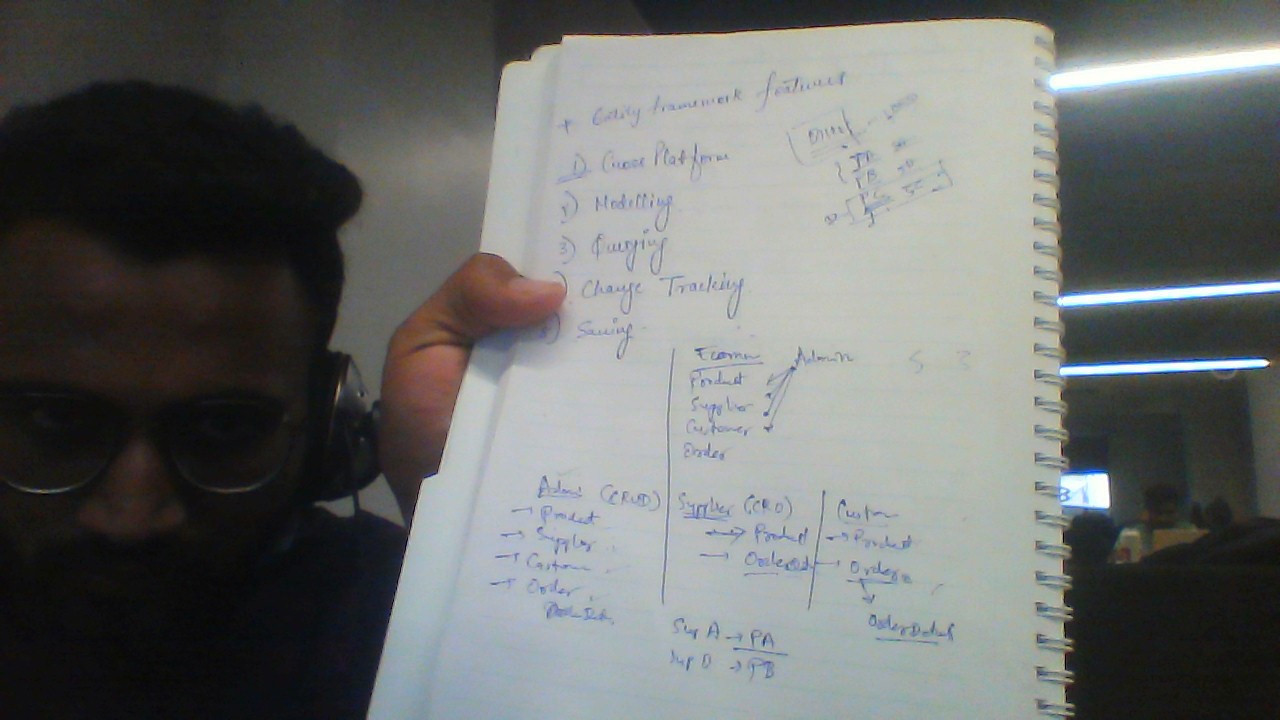 * Entity framework features
1) Cross Platform
2) Modelling
3) Querying
) Change Tracking
5) Saving
Order
PA
PB
Ecomm Admin
Product
Supplier
Customer
Order
5 3
Admin (CRUD)
→ Product
→ Supplier
→ Custom
→ Order
Supplier (CRD)
→ Product
→ Order
Custom
→ Product
→ Order
OrderDetails
Sup A → PA
Sup B → PB